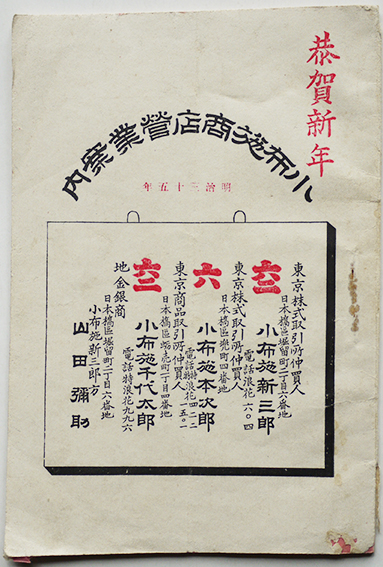 恭賀新年
小布施商店營業案内
明治三十五年
東京株式取引所仲買人
日本橋區堀留町二丁目六番地
小布施新三郎
電話浪花六〇四
東京株式取引所仲買人
日本橋區兜町四番地
六
小布施本次郎
電話特浪花
東京商品取引所仲買人
日本橋區町二丁目四番地
小布施千代太郎
電話特浪花九九六
地金銀商
日本橋區堀留町二丁目六番地
小布施新三郎方
山田彌助